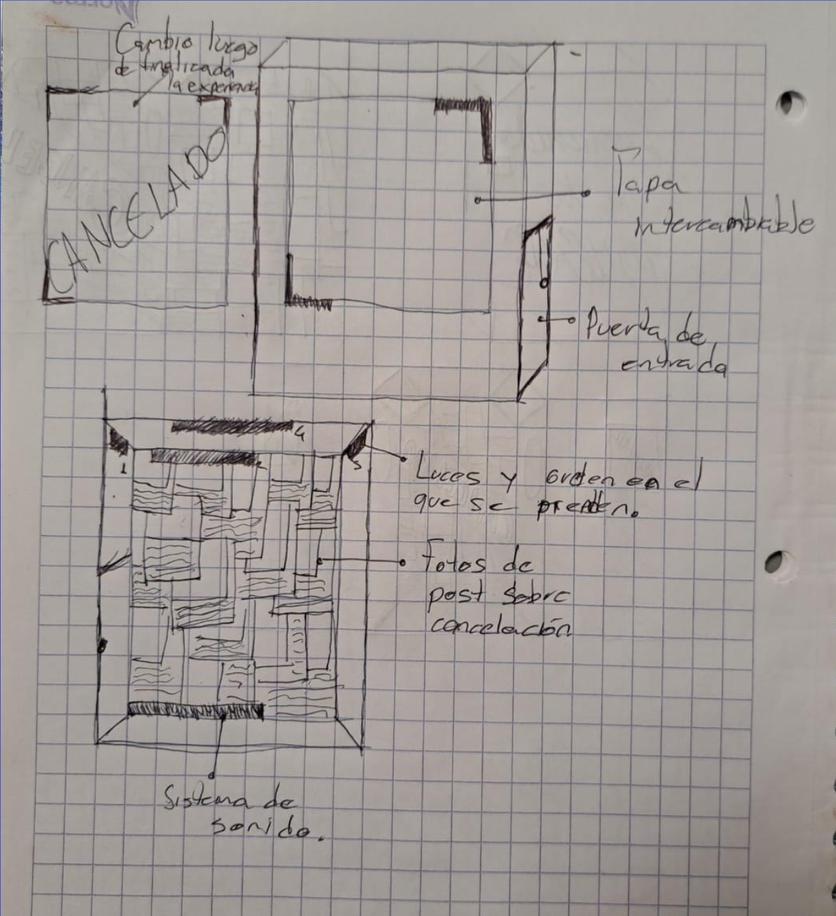 Cambio luego
de finalizada
la experiencia
CANCELADO
Tapa
intercambiable
Puerta de
entrada
4
1
3
Luces y orden en el
que se prenden.
Fotos de
post sobre
cancelación
Sistema de
sonido.